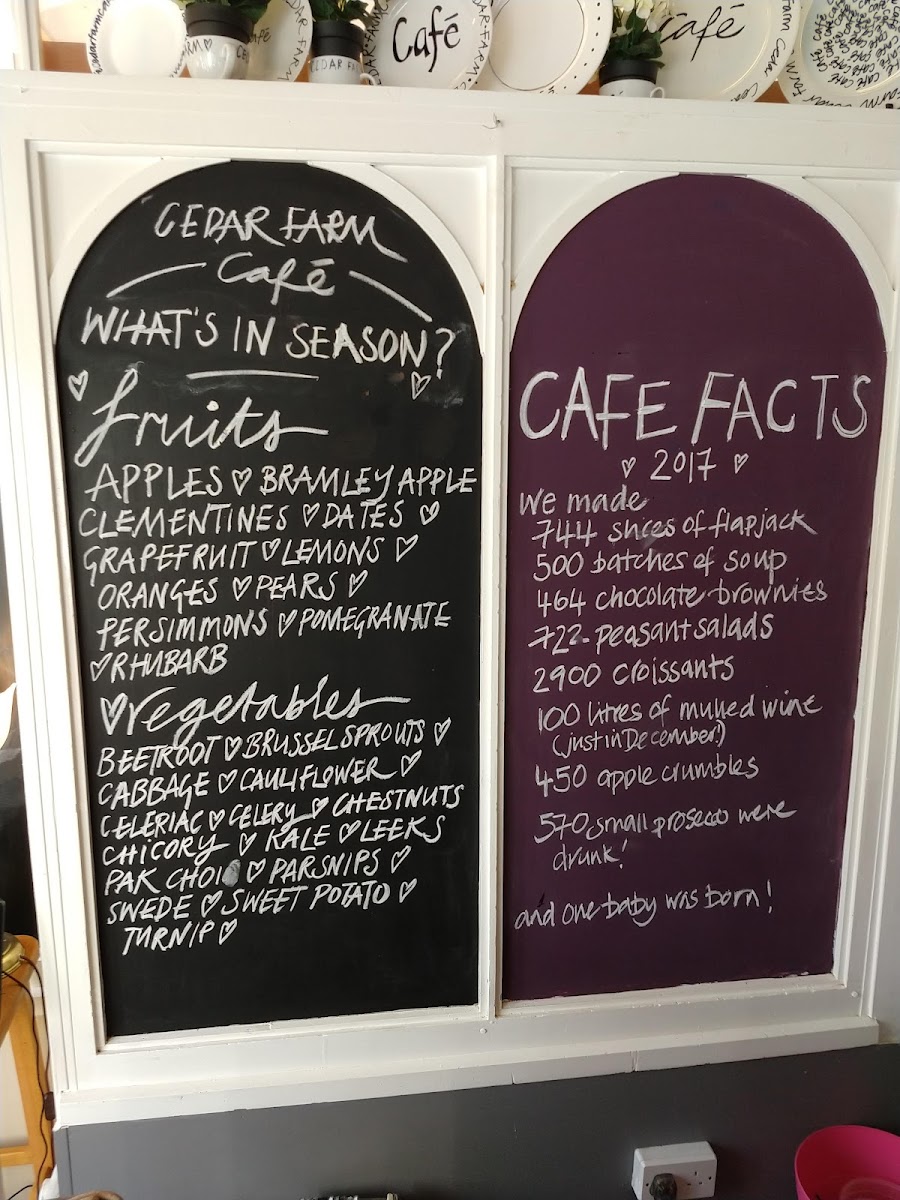 Café
CEDAR FARM
Café
CEDAR FARM
Café
WHAT'S IN SEASON?
fruits
APPLES ♡ BRAMLEY APPLE
CLEMENTINES ♡ DATES ♡
GRAPEFRUIT ♡ LEMONS ♡
ORANGES ♡ PEARS ♡
PERSIMMONS ♡ POMEGRANATE
♡ RHUBARB
♡ Vegetables
BEETROOT ♡ BRUSSEL SPROUTS ♡
CABBAGE ♡ CAULIFLOWER ♡
CELERIAC ♡ CELERY ♡ CHESTNUTS
CHICORY ♡ KALE ♡ LEEKS
PAK CHOI ♡ PARSNIPS ♡
SWEDE ♡ SWEET POTATO ♡
TURNIP ♡
CAFE FACTS
♡ 2017 ♡
We made
744 slices of flapjack
500 batches of soup
464 chocolate brownies
722 peasant salads
2900 croissants
100 litres of mulled wine
(just in December!)
450 apple crumbles
570 small prosecco were
drunk!
and one baby was born!